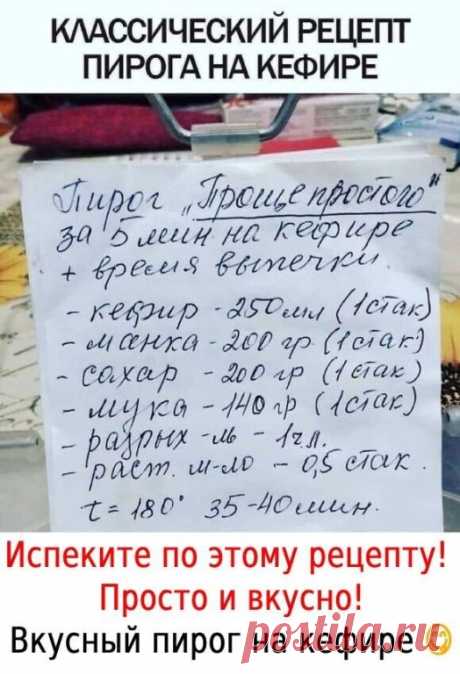 КЛАССИЧЕСКИЙ РЕЦЕПТ
ПИРОГА НА КЕФИРЕ
Пирог „Проще простого"
за 5 мин на кефире
+ время выпечки.
- кефир - 250 мл (1 стак)
- манка - 200 гр (1 стак)
- сахар - 200 гр (1 стак)
- мука - 140 гр (1 стак)
- разрых-ль - 1 ч.л.
- раст. м-ло - 0,5 стак.
t = 180° 35-40 мин.
Испеките по этому рецепту!
Просто и вкусно!
Вкусный пирог на кефире 😋
postila.ru